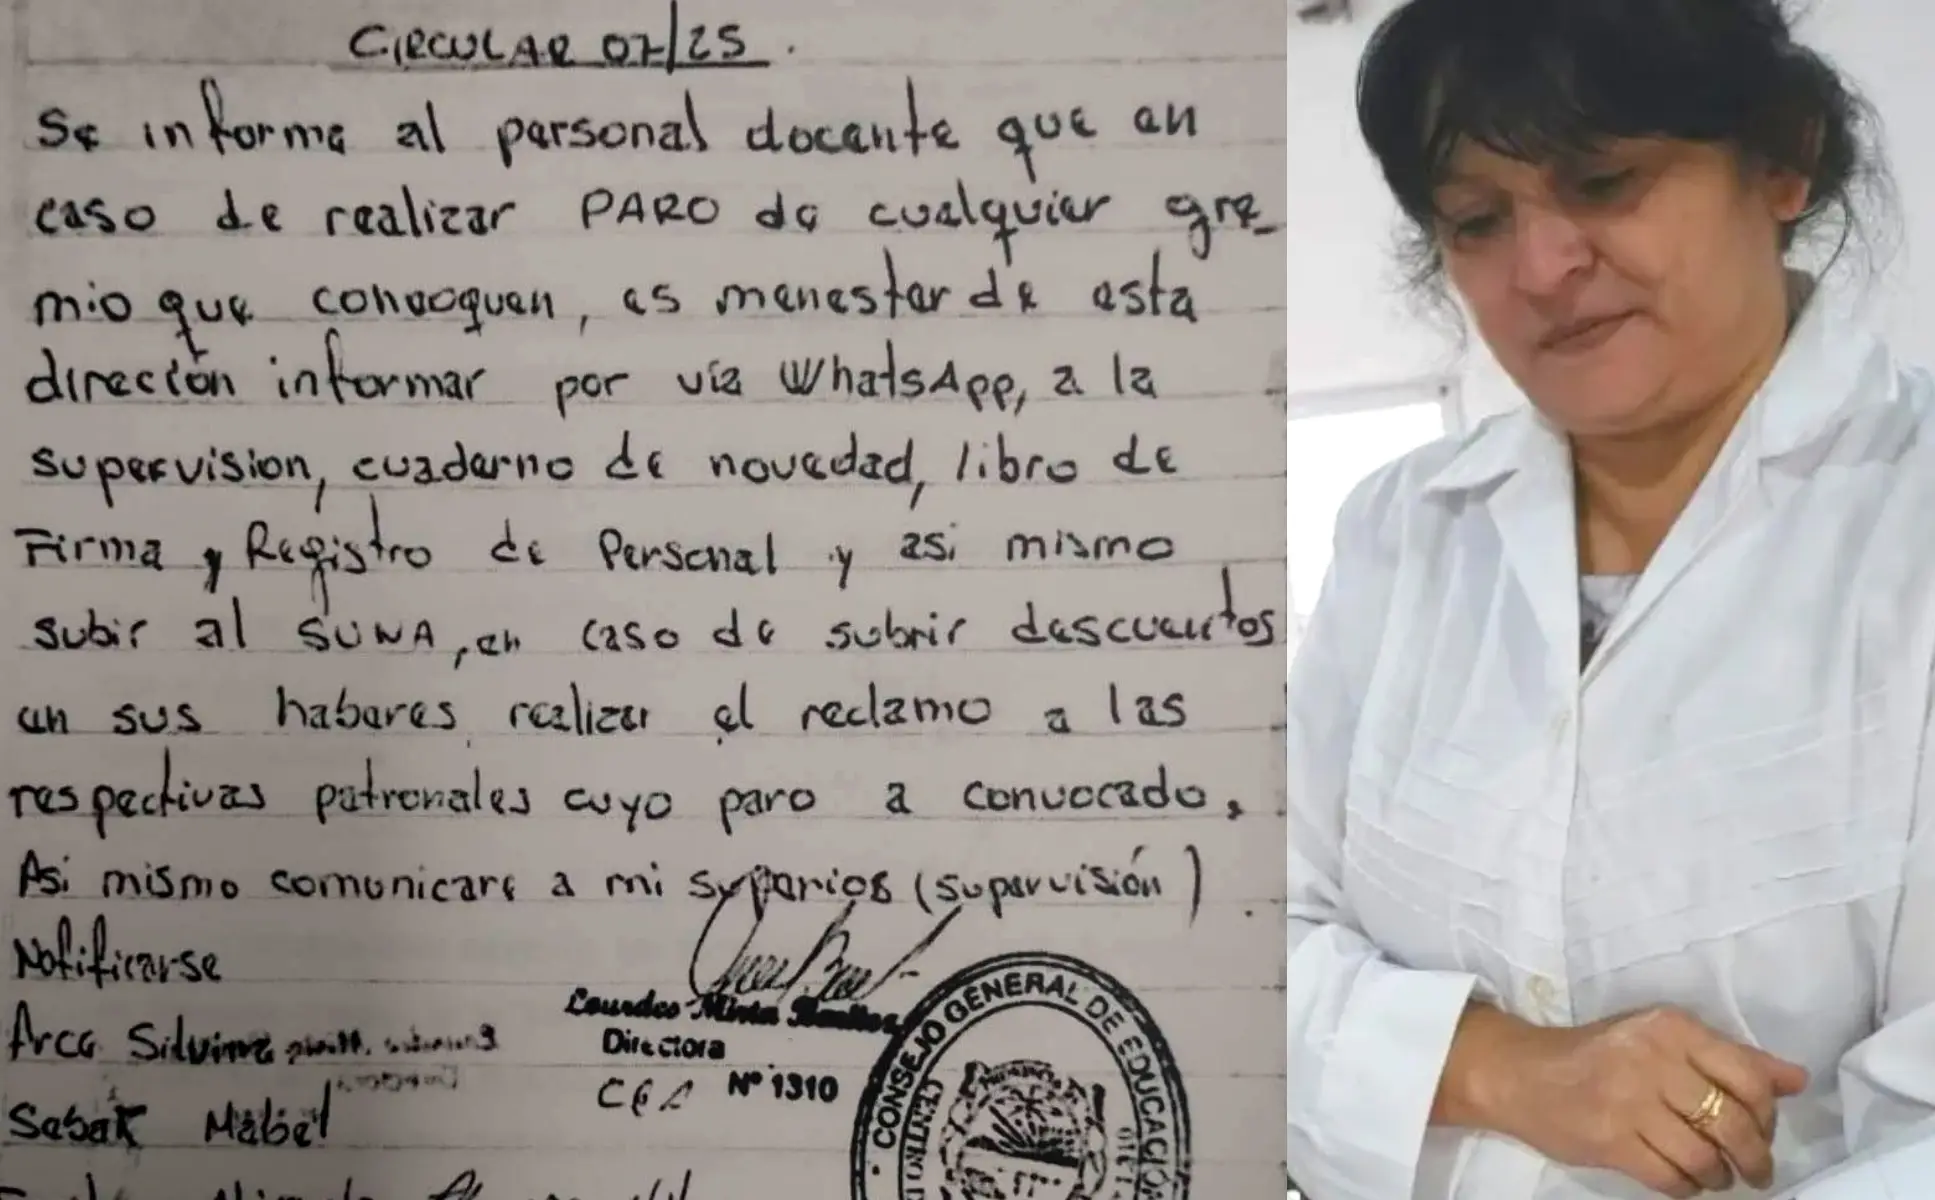 CIRCULAR 07/25.
Se informa al personal docente que en
caso de realizar PARO de cualquier gre_
mio que convoquen, es menester de esta
direción informar por vía WhatsApp, a la
supervision, cuaderno de novedad, libro de
Firma y Registro de Personal y asi mismo
subir al SUNA, en caso de subrir descuentos
en sus haberes realizar el reclamo a las
respectivas patronales cuyo paro a convocado.
Asi mismo comunicare a mi (supervisión).
Notificarse
Arce Silvina
Lourdes Mirta
Directora
Nº 1310
Mabel
CONSEJO GENERAL DE EDUCACIÓN